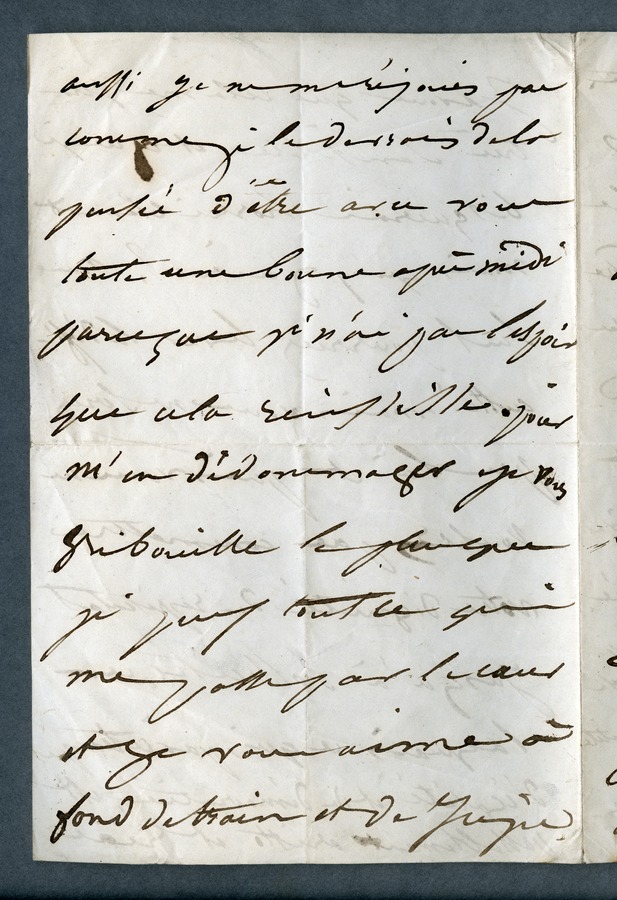 aussi je ne me réjouis pas
comme je le devrais de la
pensée d'être avec vous
toute une bonne après midi
parceque je n'ai pas l'espoir
que cela réussisse. pour
m'en dédommager je vous
gribouille le plus que
je puis tout ce qui
me passe par le cœur
et je vous aime à
fond de train et de